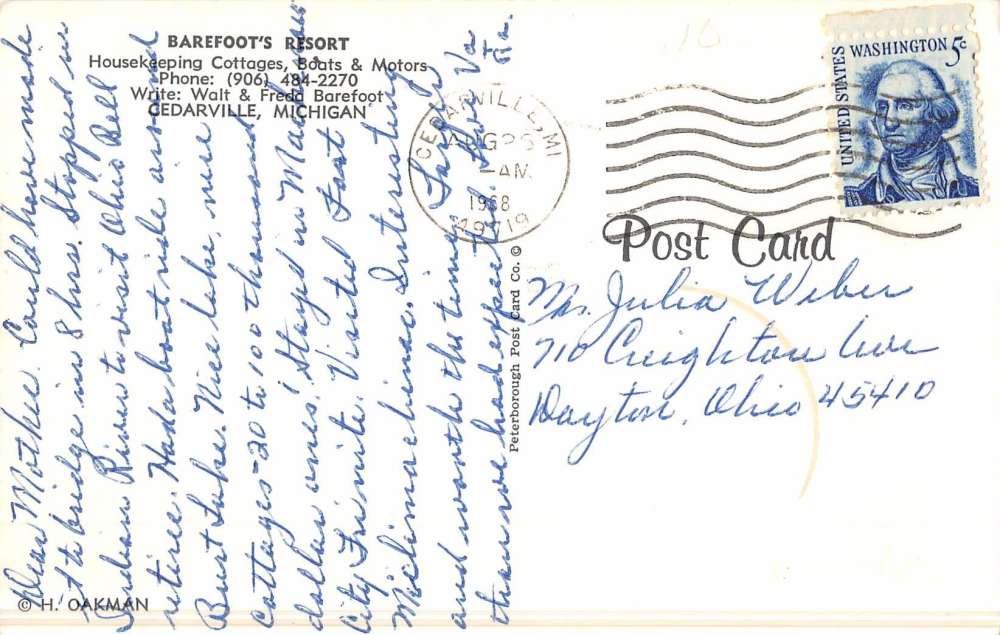 BAREFOOT'S RESORT
Housekeeping Cottages, Boats & Motors
Phone: (906) 484-2270
Write: Walt & Freda Barefoot
CEDARVILLE, MICHIGAN
Dear Mother. Could have made
it to bridge in 8 hrs. Stopped in
Indian River to visit Ohio Bell
retiree. Had a boat ride around
Burt Lake. Nice lake, nice
cottages - 20 to 100 thousand
dollar ones! Stayed in Mackinaw
City Fri nite. Visited Fort
Michilimackinac. Interesting
and worth the time. Larger
than we had expected. Love Va
© H. OAKMAN
Peterborough Post Card Co. ©
CEDARVILLE, MI
AUG
AM
1968
49719
UNITED STATES
WASHINGTON 5c
Post Card
Mrs. Julia Weber
710 Creighton Ave
Dayton, Ohio 45410